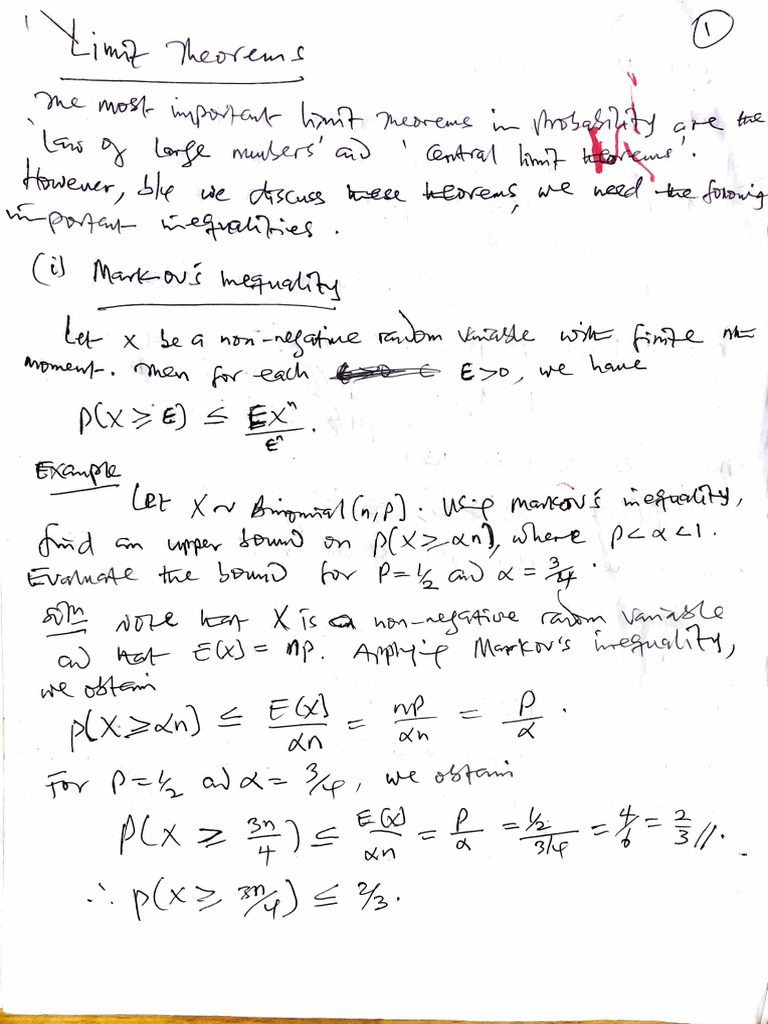 1
Limit Theorems
The most important limit theorems in probability are the
'law of large numbers' and 'central limit theorems'.
However, b/4 we discuss these theorems, we need the following
important inequalities.
(i) Markov's inequality
Let X be a non-negative random variable with finite nth
moment. Then for each ε>0, we have
P(X ≥ ε) ≤ EXⁿ/εⁿ.
Example
Let X ~ Binomial(n, p). Using Markov's inequality,
find an upper bound on P(X ≥ αn), where p < α < 1.
Evaluate the bound for P = 1/2 and α = 3/4.
Soln Note that X is a non-negative random variable
and that E(X) = np. Applying Markov's inequality,
we obtain
P(X ≥ αn) ≤ E(X)/αn = np/αn = p/α.
For P = 1/2 and α = 3/4, we obtain
P(X ≥ 3n/4) ≤ E(X)/αn = P/α = 1/2/3/4 = 4/6 = 2/3//.
∴ P(X ≥ 3n/4) ≤ 2/3.